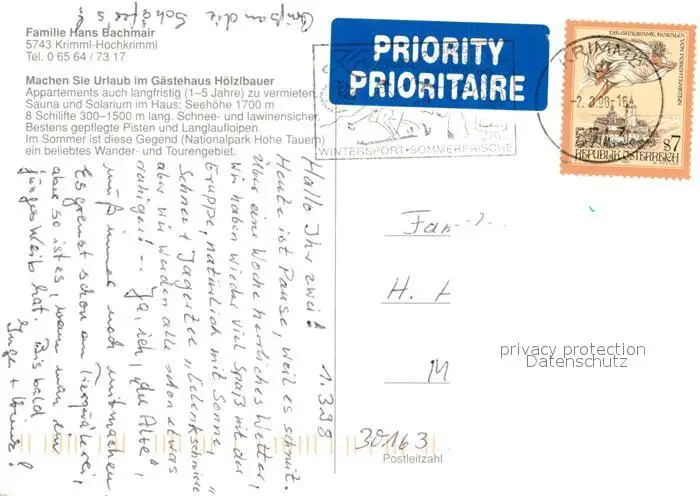 Grüß an die Schäfer's!
Familie Hans Bachmair
5743 Krimml-Hochkrimml
Tel. 0 65 64 / 73 17
Machen Sie Urlaub im Gästehaus Hölzlbauer
Appartements auch langfristig (1–5 Jahre) zu vermieten.
Sauna und Solarium im Haus; Seehöhe 1700 m
8 Schilifte 300–1500 m lang. Schnee- und lawinensicher.
Bestens gepflegte Pisten und Langlaufloipen.
Im Sommer ist diese Gegend (Nationalpark Hohe Tauern)
ein beliebtes Wander- und Tourengebiet.
PRIORITY
PRIORITAIRE
WINTERSPORT·SOMMERFRISCHE
KRIMML
-2. 3.98-16
57
S7
REPUBLIK ÖSTERREICH
1. 3 98
Hallo Ihr zwei!
Heute ist Pause, weil es schneit.
Über eine Woche herrliches Wetter,
wir haben wieder viel Spaß mit der
Gruppe, natürlich mit Sonne
Schnee + Jagertee "Gelenkschmiere"
aber wir werden alle schon etwas
ruhiger! -- Ja, ich, "die Alte",
muß immer noch mitmachen.
Es grenzt schon an Tierquälerei,
aber so ist es, wenn man ein
junges Weib hat. Bis bald
Inge +
Fam.
H.
M
30163
Postleitzahl
privacy protection
Datenschutz